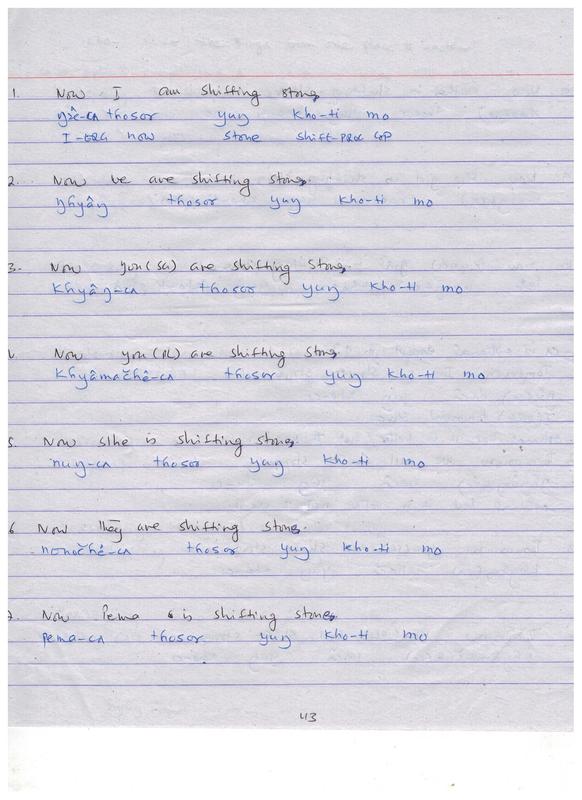 1. Now I am shifting stones
ŋʒê-cʌ thosor yuŋ kho-ti mo
I-ERG now stone shift-PROG COP
2. Now we are shifting stones.
ŋhyâŋ thosor yuŋ kho-ti mo
3. Now you (SG) are shifting stones
khyâŋ-cʌ thosor yuŋ kho-ti mo
Now you (PL) are shifting stones
khyâmačhê-cʌ thosor yuŋ kho-ti mo
5. Now s/he is shifting stones.
nuŋ-cʌ thosor yuŋ kho-ti mo
6 Now they are shifting stones.
thosor yuŋ kho-ti mo
7. Now Pema is shifting stones
pema-cʌ thosor yuŋ kho-ti mo
43